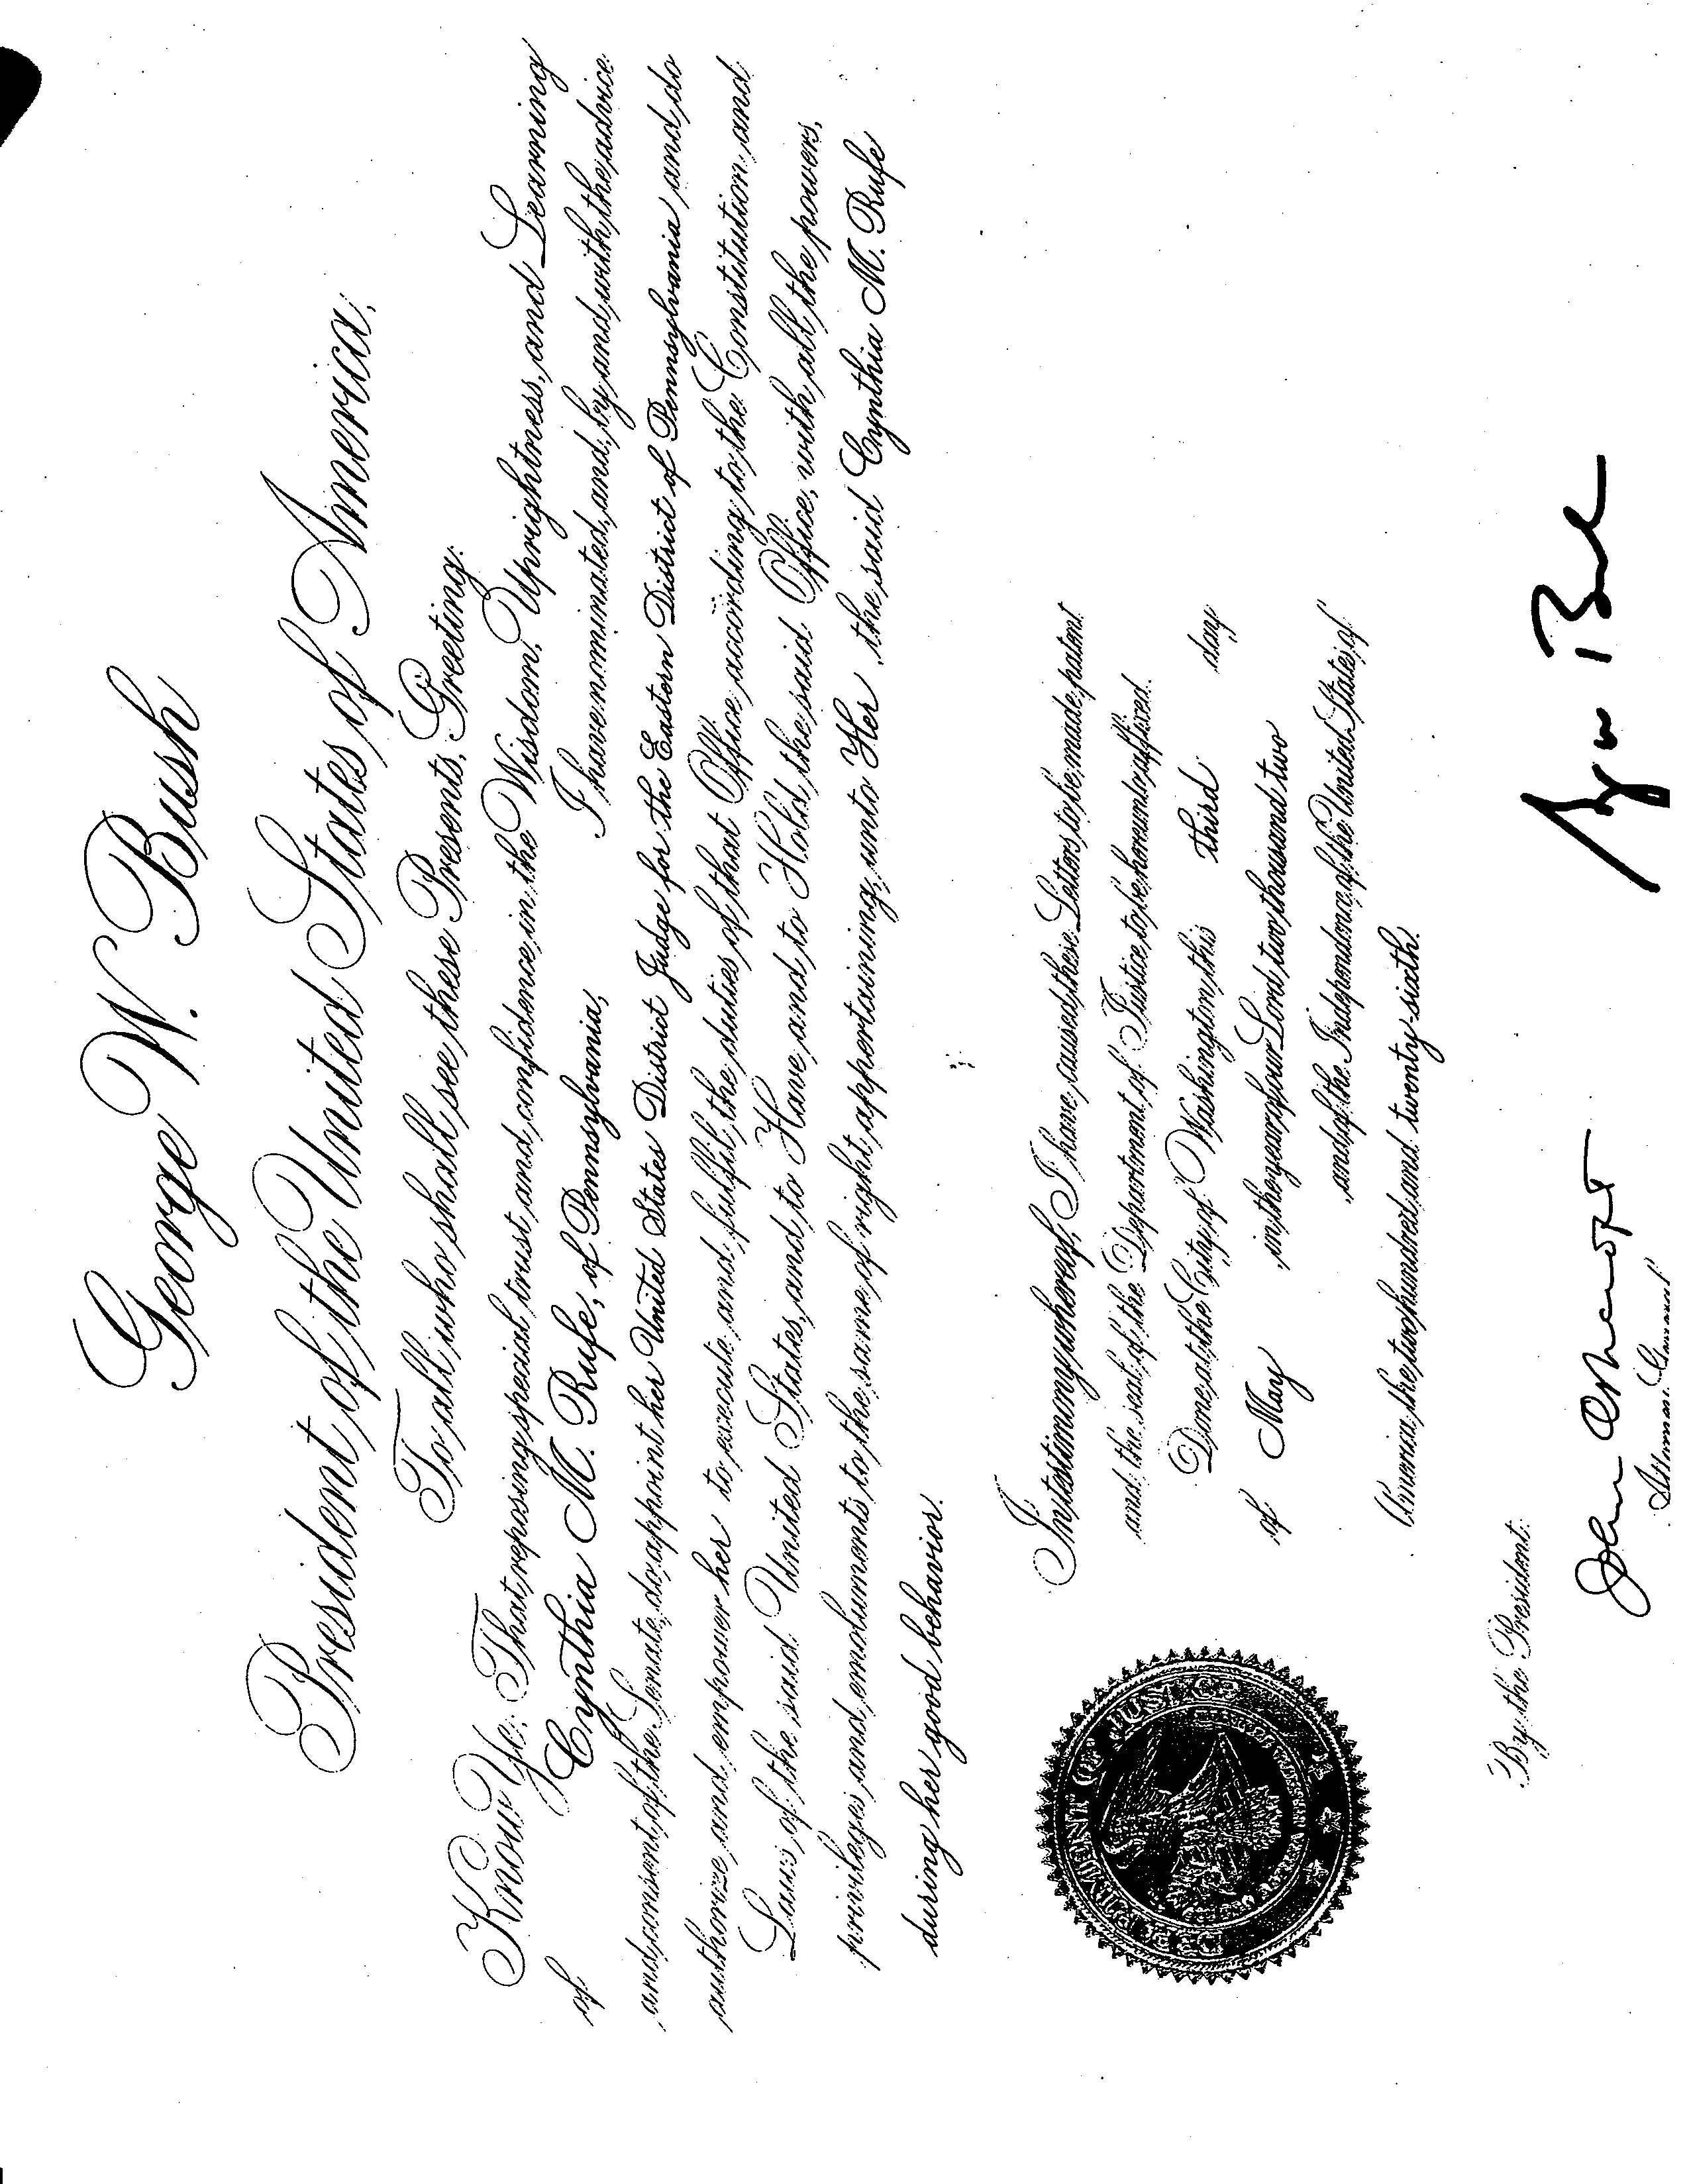 George W. Bush
President of the United States of America,
To all who shall see these Presents, Greeting:
Know Ye: That reposing special trust and confidence in the Wisdom, Uprightness, and Learning
of Cynthia M. Rufe, of Pennsylvania, I have nominated, and, by and with the advice
and consent of the Senate, do appoint her United States District Judge for the Eastern District of Pennsylvania and do
authorize and empower her to execute and fulfil the duties of that Office according to the Constitution and
Laws of the said United States, and to Have and to Hold the said Office, with all the powers,
privileges and emoluments to the same of right appertaining, unto Her, the said Cynthia M. Rufe
during her good behavior.
In testimony whereof, I have caused these Letters to be made patent
and the seal of the Department of Justice to be hereunto affixed.
Done at the City of Washington this third day
of May in the year of our Lord two thousand two
and of the Independence of the United States of
America the two hundred and twenty-sixth.
DEPARTMENT OF JUSTICE
By the President:
George Bush
John Ashcroft
Attorney General